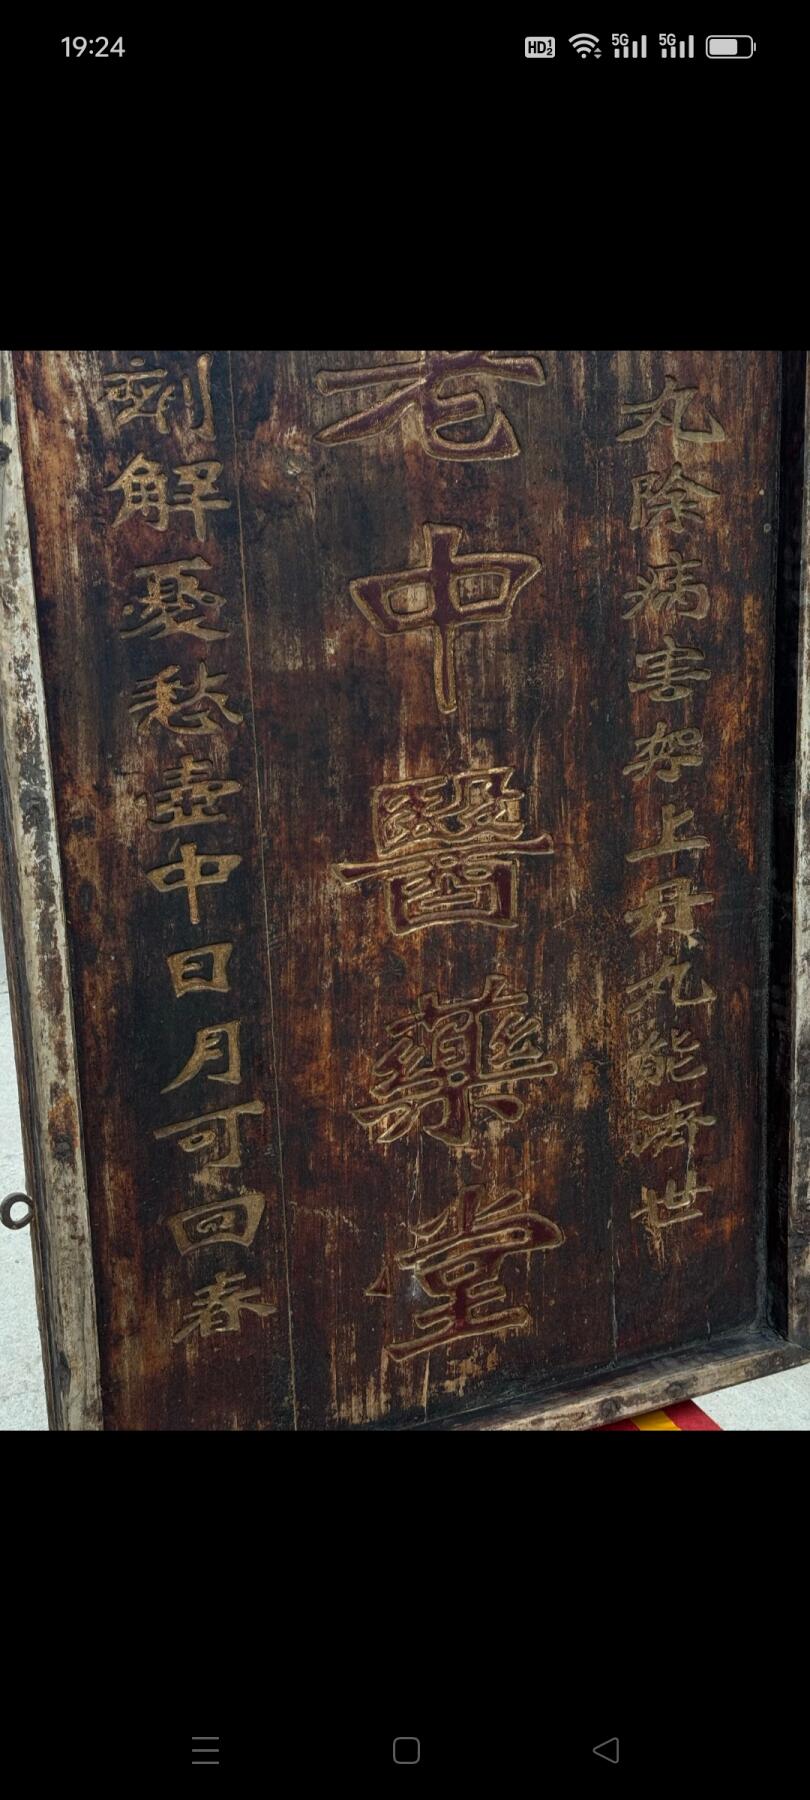 19:24
HD 1 2 5G 5G
丸除病害架上丹丸能濟世
老中醫藥堂
劑解憂愁壺中日月可回春